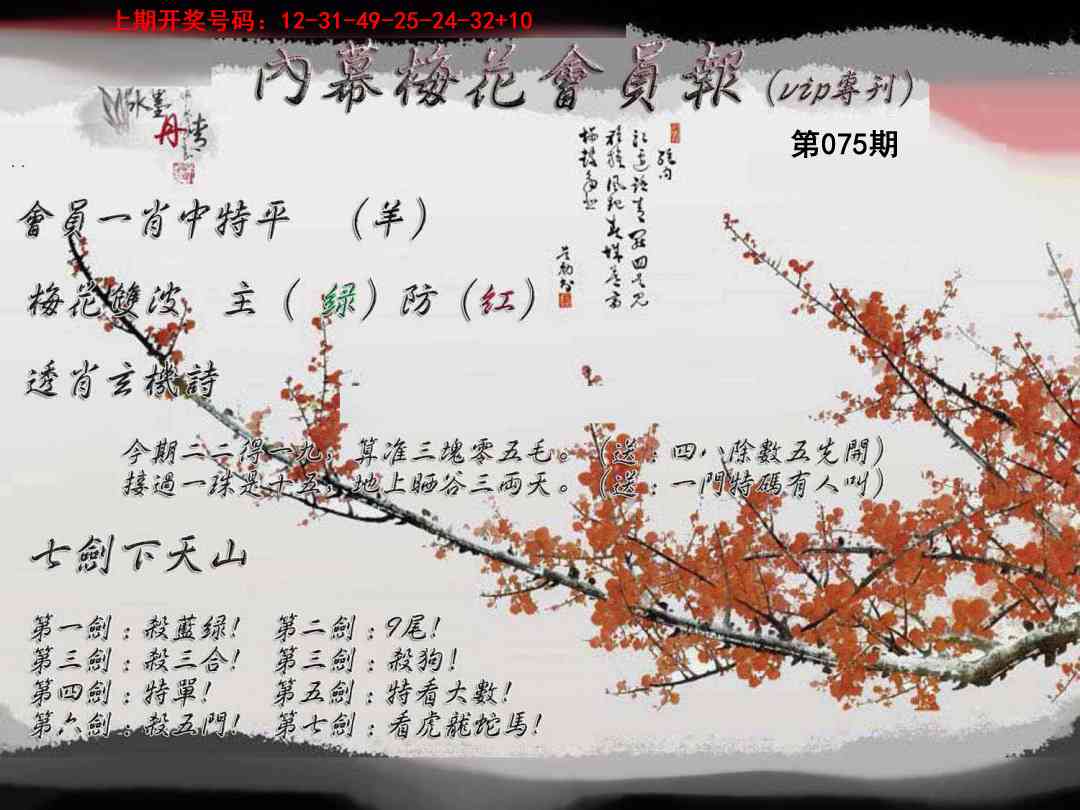 上期开奖号码：12-31-49-25-24-32+10
內幕梅花會員報(vip專刊)
第075期
水墨
丹青
會員一肖中特平 （羊）
梅花雙波 主（绿）防（红）
透肖玄機詩
今期二二得一九，算准三塊零五毛。（送：四八除數五先開）
接過一珠是十五，地上晒谷三兩天。（送：一門特碼有人叫）
七劍下天山
第一劍：殺藍绿！ 第二劍：9尾！
第三劍：殺三合！ 第三劍：殺狗！
第四劍：特單！ 第五劍：特看大數！
第六劍：殺五門！ 第七劍：看虎龍蛇馬！